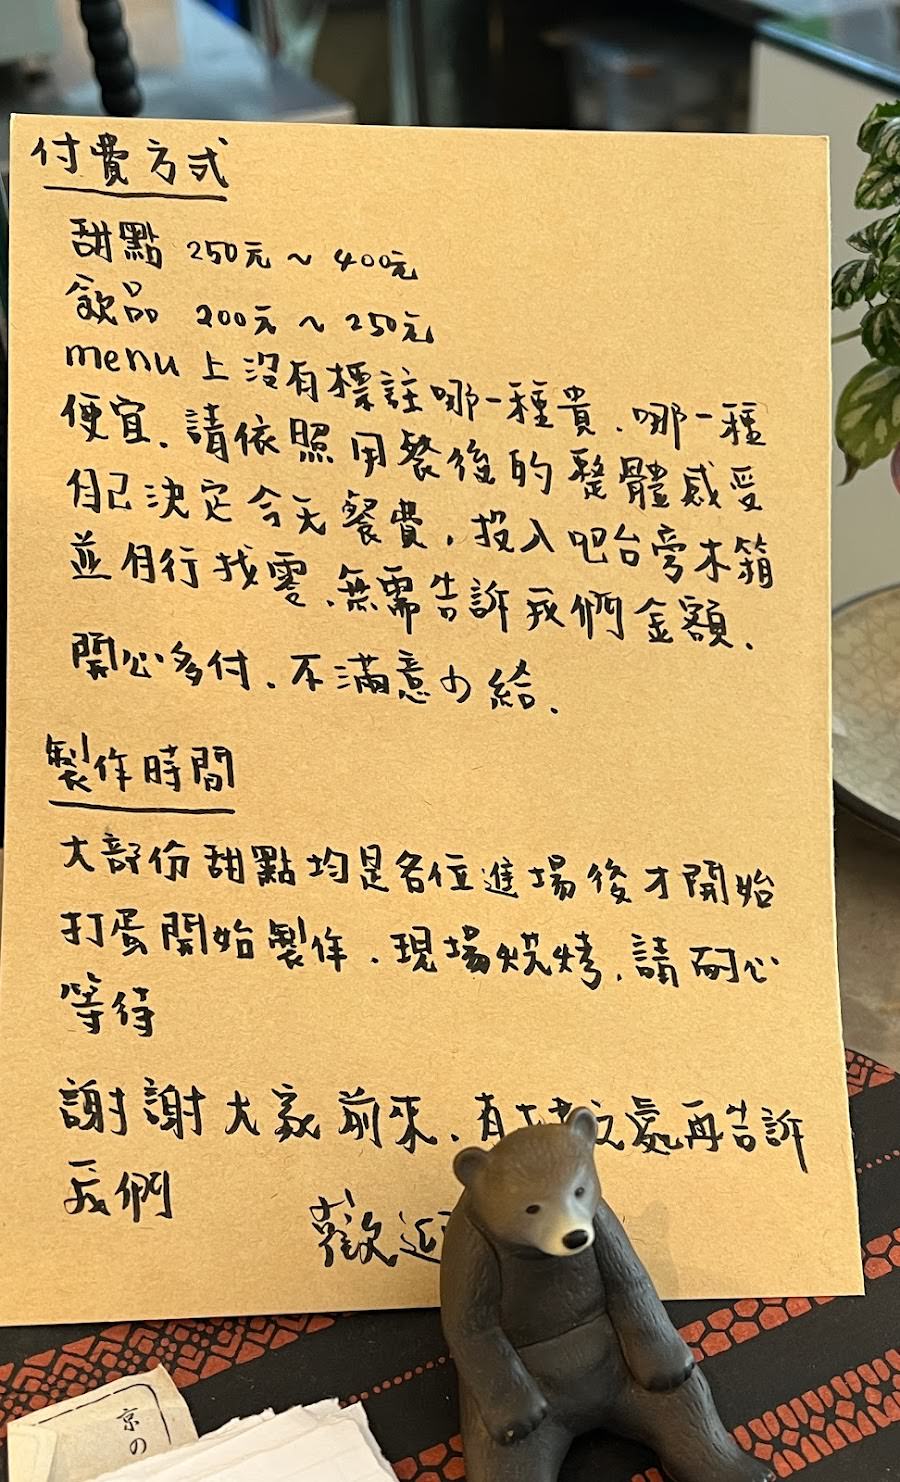 付費方式
甜點 250元～400元
飲品 200元～250元
menu 上沒有標註哪一種貴、哪一種
便宜、請依照用餐後的整體感受
自己決定今天餐費，投入吧台旁木箱
並自行找零、無需告訴我們金額、
開心多付、不滿意少給、
製作時間
大部份甜點均是各位進場後才開始
打蛋開始製作、現場燒烤、請耐心
等待
謝謝大家前來、有 之處再告訴
我們
歡迎
京の